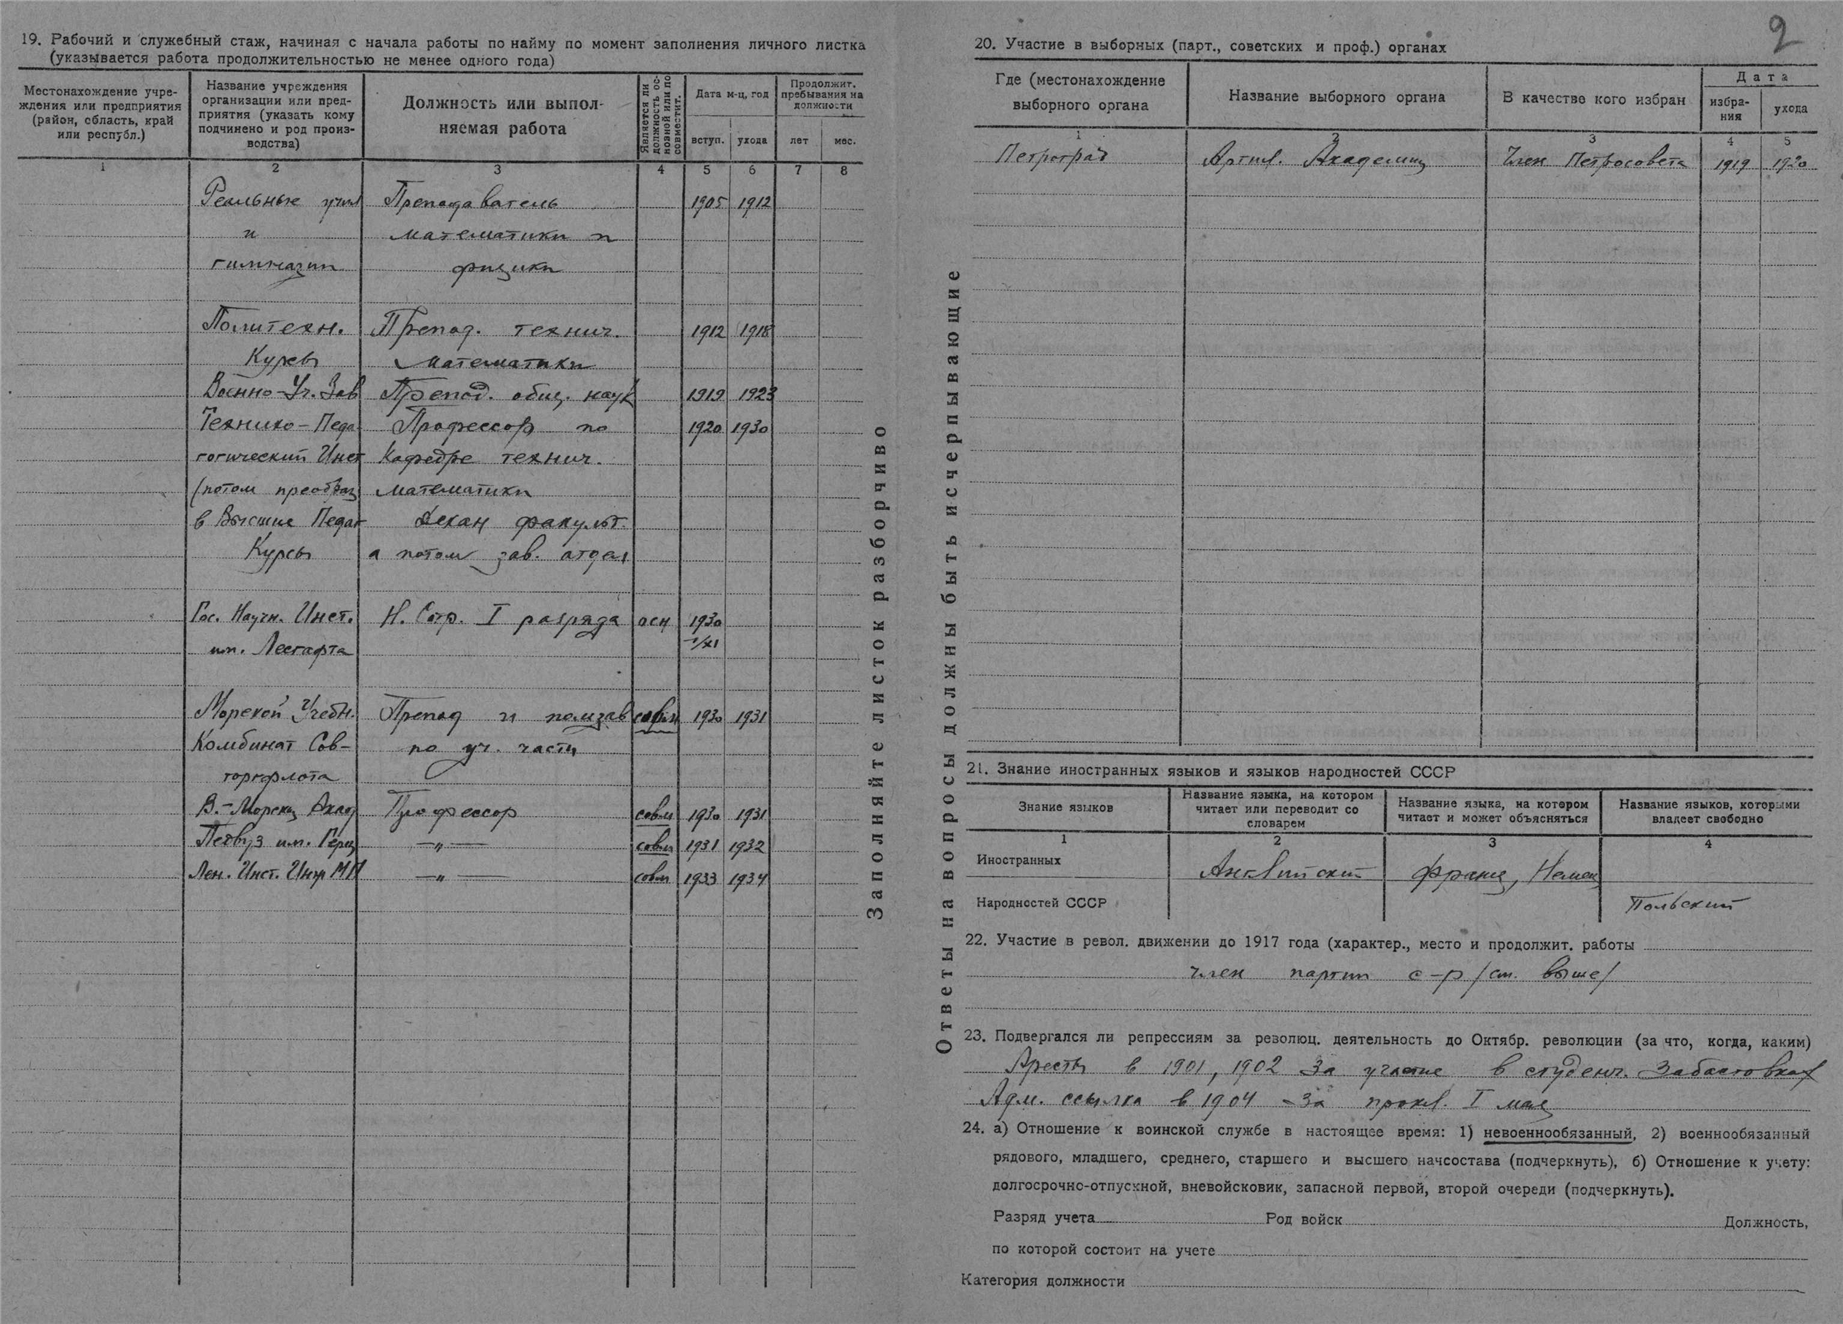 2
19. Рабочий и служебный стаж, начиная с начала работы по найму по момент заполнения личного листка
(указывается работа продолжительностью не менее одного года)
Местонахождение учре-
ждения или предприятия
(район, область, край
или республ.)
Название учреждения
организации или пред-
приятия (указать кому
подчинено и род произ-
водства)
Должность или выпол-
няемая работа
Является ли
должность ос-
новной или по
совместит.
Дата м-ц, год
вступ. ухода
Продолжит.
пребывания на
должности
лет мес.
1 2 3 4 5 6 7 8
Реальные учил Преподаватель 1905 1912
и математики и
гимназии физики
Политехн. Препод. технич. 1912 1918
Курсы математики
Военно-Уч. Зав Препод. общ. наук 1919 1923
Технико-Педа- Профессор по 1920 1930
гогический Инст Кафедре технич.
(потом преобраз математики
в Высшие Педаг Декан факульт.
Курсы а потом зав. отдел
Гос. Научн. Инст. Н. Сотр. I разряда осн 1930
им. Лесгафта 1/XI
Морской Учебн. Препод и помзав совм 1930 1931
Комбинат Сов- по уч. части
торгфлота
В.-Морск. Акад Профессор совм 1930 1931
Педвуз им. Герц —„— совм 1931 1932
Лен. Инст. Инж МП —„— совм 1933 1934
Заполняйте листок разборчиво
Ответы на вопросы должны быть исчерпывающие
20. Участие в выборных (парт., советских и проф.) органах
Где (местонахождение
выборного органа
Название выборного органа
В качестве кого избран
Дата
избра-
ния
ухода
1 2 3 4 5
Петроград Артил. Академии Член Петросовета 1919 1920
21. Знание иностранных языков и языков народностей СССР
Знание языков
Название языка, на котором
читает или переводит со
словарем
Название языка, на котором
читает и может объясняться
Название языков, которыми
владеет свободно
1 2 3 4
Иностранных Английский Франц, Немец
Народностей СССР Польский
22. Участие в револ. движении до 1917 года (характер., место и продолжит. работы
член партии с-р /см. выше/
23. Подвергался ли репрессиям за революц. деятельность до Октябр. революции (за что, когда, каким)
Аресты в 1901, 1902 за участие в студенч. забастовках
Адм. ссылка в 1904 - за прокл. I мая
24. а) Отношение к воинской службе в настоящее время: 1) невоеннообязанный, 2) военнообязанный
рядового, младшего, среднего, старшего и высшего начсостава (подчеркнуть), б) Отношение к учету:
долгосрочно-отпускной, вневойсковик, запасной первой, второй очереди (подчеркнуть).
Разряд учета Род войск Должность,
по которой состоит на учете
Категория должности